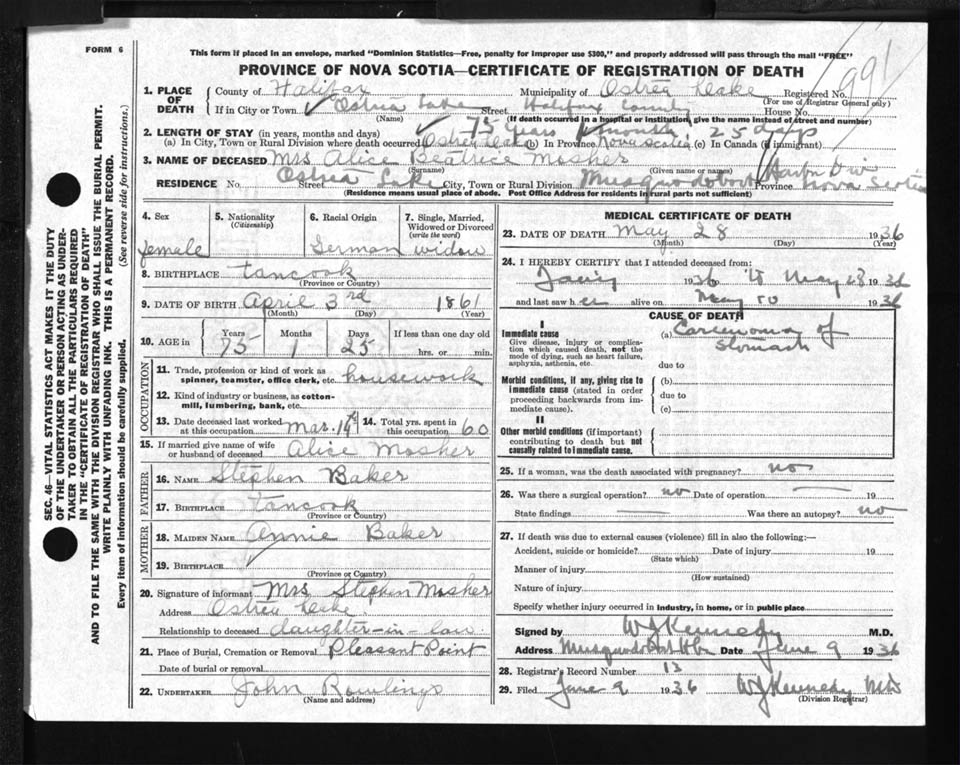 FORM 6
This form if placed in an envelope, marked "Dominion Statistics—Free, penalty for improper use $300," and properly addressed will pass through the mail "FREE"
PROVINCE OF NOVA SCOTIA—CERTIFICATE OF REGISTRATION OF DEATH
991
1. PLACE OF DEATH
County of Halifax Municipality of Ostrea Leake Registered No.
(For use of Registrar General only)
If in City or Town Ostrea Lake Street Halifax County House No.
(Name) (If death occurred in a hospital or institution, give the name instead of street and number)
2. LENGTH OF STAY (in years, months and days) 75 years 1 month 25 days
(a) In City, Town or Rural Division where death occurred Ostrea Leake (b) In Province Nova Scotia (c) In Canada (if immigrant)
3. NAME OF DECEASED Mrs Alice Beatrice Mosher
(Surname) (Given name or names)
RESIDENCE No. Ostrea Lake Street City, Town or Rural Division Musquodoboit Harbor Div Province Nova Scotia
(Residence means usual place of abode. Post Office Address for residents in rural parts not sufficient)
SEC. 46—VITAL STATISTICS ACT MAKES IT THE DUTY
OF THE UNDERTAKER OR PERSON ACTING AS UNDER-
TAKER TO OBTAIN ALL THE PARTICULARS REQUIRED
IN THE "CERTIFICATE OF REGISTRATION OF DEATH"
AND TO FILE THE SAME WITH THE DIVISION REGISTRAR WHO SHALL ISSUE THE BURIAL PERMIT.
WRITE PLAINLY WITH UNFADING INK. THIS IS A PERMANENT RECORD.
Every item of information should be carefully supplied. (See reverse side for instructions.)
4. Sex
female
5. Nationality
(Citizenship)
6. Racial Origin
German
7. Single, Married, Widowed or Divorced
(write the word)
widow
8. BIRTHPLACE tancook
(Province or Country)
9. DATE OF BIRTH April 3rd 1861
(Month) (Day) (Year)
10. AGE in
Years Months Days If less than one day old
75 1 25 hrs. or min.
OCCUPATION
11. Trade, profession or kind of work as
spinner, teamster, office clerk, etc. housework
12. Kind of industry or business, as cotton-
mill, lumbering, bank, etc.
13. Date deceased last worked at this occupation Mar. 19th
14. Total yrs. spent in this occupation 60
15. If married give name of wife
or husband of deceased Alice Mosher
FATHER
16. NAME Stephen Baker
17. BIRTHPLACE Tancook
(Province or Country)
MOTHER
18. MAIDEN NAME Annie Baker
19. BIRTHPLACE
(Province or Country)
20. Signature of informant Mrs Stephen Mosher
Address Ostrea Leake
Relationship to deceased daughter-in-law
21. Place of Burial, Cremation or Removal Pleasant Point
Date of burial or removal
22. UNDERTAKER John Rowlings
(Name and address)
MEDICAL CERTIFICATE OF DEATH
23. DATE OF DEATH May 28 1936
(Month) (Day) (Year)
24. I HEREBY CERTIFY that I attended deceased from:
1936 to May 28 1936
and last saw her alive on May 10 1936
CAUSE OF DEATH
I
Immediate cause (a) Carcenoma of stomach
Give disease, injury or complica-
tion which caused death, not the
mode of dying, such as heart failure,
asphyxia, asthenia, etc.
due to
Morbid conditions, if any, giving rise to
immediate cause (stated in order
proceeding backwards from im-
mediate cause).
(b)
due to
(c)
II
Other morbid conditions (if important)
contributing to death but not
causally related to immediate cause.
25. If a woman, was the death associated with pregnancy? no
26. Was there a surgical operation? no Date of operation 19
State findings Was there an autopsy? no
27. If death was due to external causes (violence) fill in also the following:—
Accident, suicide or homicide? Date of injury 19
(State which)
Manner of injury
(How sustained)
Nature of injury
Specify whether injury occurred in industry, in home, or in public place
Signed by WJ Kennedy M.D.
Address Musquodoboit Hbr Date June 9 1936
28. Registrar's Record Number 13
29. Filed June 9 1936 WJ Kennedy MD
(Division Registrar)